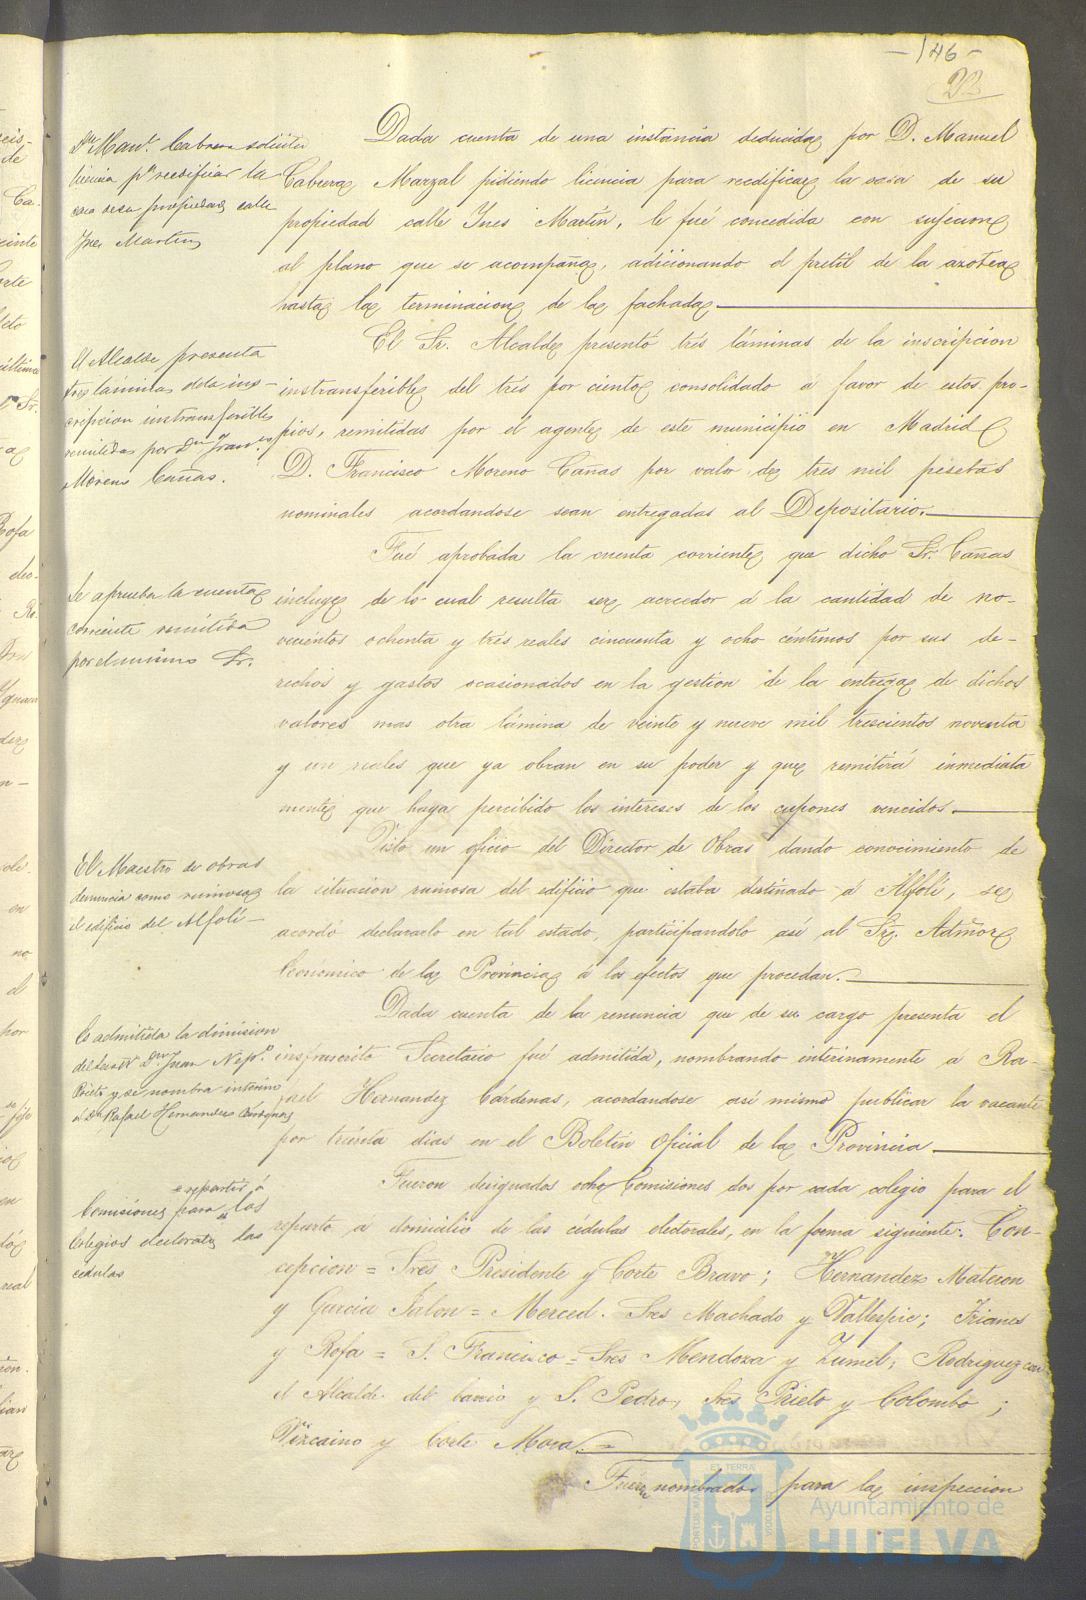 146
22
Dn Manl. Cabrera solicita
licencia pa reedificar la
casa de su propiedad calle
Ines Martin
Dada cuenta de una instancia deducida por D. Manuel
Cabrera Marzal pidiendo licencia para reedificar la casa de su
propiedad calle Ines Martin, le fué concedida con sujecion
al plano que se acompaña, adicionando el pretil de la azotea
hasta la terminacion de la fachada
El Alcalde presenta
tres láminas de la ins-
cripcion instransferible
remitidas por Dn Franco
Moreno Cañas.
El Sr. Alcalde presentó trés láminas de la inscripcion
instransferible del trés por ciento consolidado á favor de estos pro-
pios, remitidas por el agente de este municipio en Madrid
D. Francisco Moreno Cañas por valor de tres mil pesetas
nominales acordandose sean entregadas al Depositario.
Se aprueba la cuenta
corriente remitida
por el mismo Sr.
Fué aprobada la cuenta corriente que dicho Sr. Cañas
incluye de lo cual resulta ser acreedor á la cantidad de no-
vecientos ochenta y trés reales cincuenta y ocho céntimos por sus de-
rechos y gastos ocasionados en la gestion de la entrega de dichos
valores mas otra lámina de veinte y nueve mil trescientos noventa
y un reales que ya obran en su poder y que remitirá inmediata
mente que haya percibido los intereses de los cupones vencidos.
El Maestro de obras
denuncia como ruinoso
el edificio del Alfolí
Visto un oficio del Director de Obras dando conocimiento de
la situacion ruinosa del edificio que estaba destinado á Alfolí, se
acordó declararlo en tal estado, participandolo asi al Sr. Admor
Económico de la Provincia á los efectos que procedan.
Es admitida la dimision
del Secretº Dn Juan Nepº.
Prieto y se nombra interino
a Dn Rafael Hernandez Cardenas
Dada cuenta de la renuncia que de su cargo presenta el
insfrascrito Secretario fué admitida, nombrando interinamente a Ra-
fael Hernandez Cárdenas, acordandose asi mismo publicar la vacante
por treinta dias en el Boletin oficial de la Provincia
Comisiones para repartir á los
Colegios electorales las
cédulas
Fueron designados ocho Comisiones dos por cada colegio para el
reparto a domicilio de las cédulas electorales, en la forma siguiente: Con-
cepcion = Sres Presidente y Corte Bravo; Hernandez Materon
y Garcia Jalon = Merced. Sres Machado y Vallespin; Trianes
y Rofa = S. Francisco = Sres Mendoza y Zumel; Rodriguez con
el Alcalde del barrio y S. Pedro, Sres Prieto y Colombo;
Vizcaino y Corte Mora. =
Fueron nombrados para la inspeccion
Ayuntamiento de
HUELVA